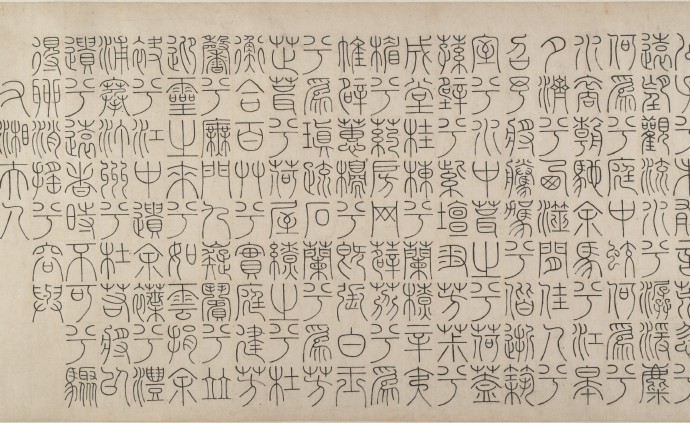 公子兮未敢言荒忽兮
遠望觀流水兮潺湲麋
何為兮庭中蛟何為兮
水裔朝馳余馬兮江皋
夕濟兮西澨聞佳人兮
召予將騰駕兮偕逝築
室兮水中葺之兮荷蓋
蓀壁兮紫壇匊芳椒兮
成堂桂棟兮蘭橑辛夷
楣兮葯房网薜荔兮為
帷擗蕙櫋兮既張白玉
兮為瑱疏石蘭兮為芳
芷葺兮荷屋繚之兮杜
衡合百艸兮實庭建芳
馨兮廡門九嶷繽兮並
迎靈之來兮如雲捐余
袂兮江中遺余褋兮澧
浦搴汀洲兮杜若將以
遺兮遠者時不可兮驟
得聊逍遙兮容與
右湘夫人